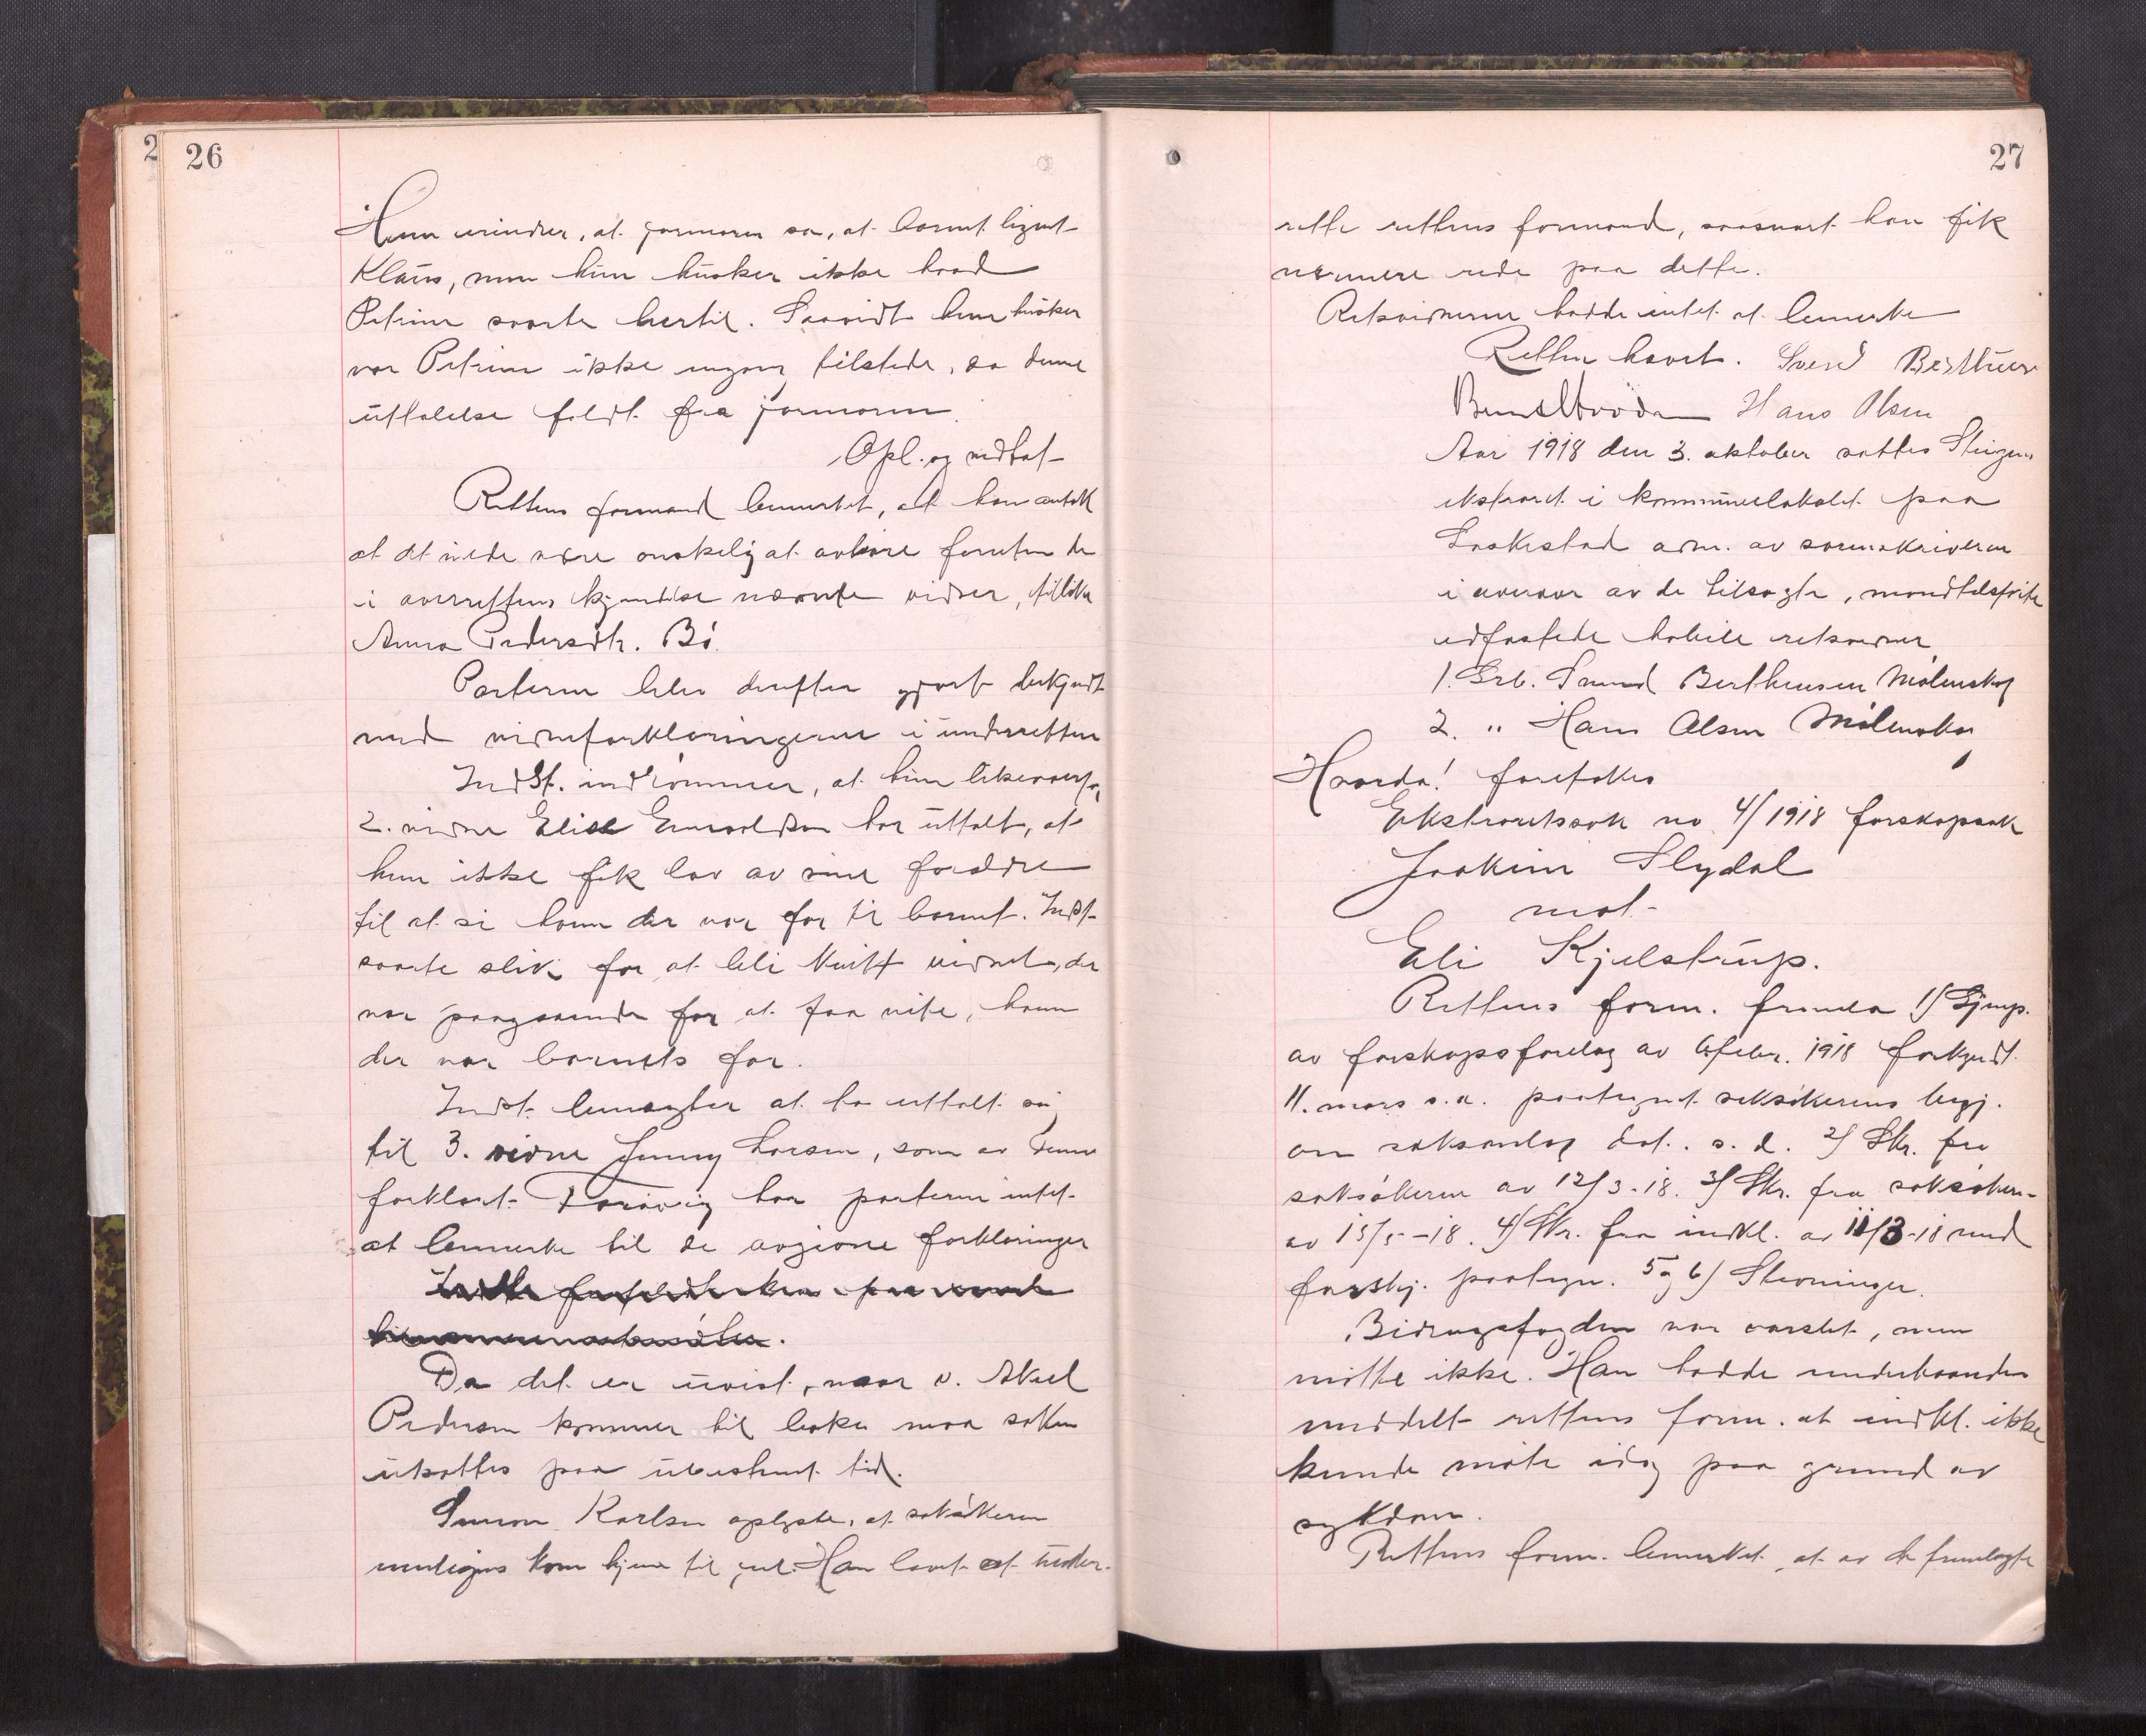 26
Hun erindrer, at jormoren sa, at barnet lignet
Klaus, men hun husker ikke hvad
Petrine svarte hertil. Saavidt hun husker
var Petrine ikke engang tilstede, da denne
uttalelse faldt fra jormoren.
Opl. og vedtat
Rettens formand bemerket, at han antok
at det vilde være ønskelig at avhøre foruten de
i overrettens kjendelse nævnte vidner, tillike
Anna Pedersdtr. Bø.
Parterne blev derefter gjort bekjendt
med vidneforklaringerne i underretten
Indst. indrømmer, at hun likeoverfor
2. vidne Elise Enevoldsen har uttalt, at
hun ikke fik lov av sine forældre
til at si hvem der var far til barnet. Indst.
svarte slik for at bli kvitt vidnet, der
var paagaaende for at faa vite, hvem
der var barnets far.
Indst. benegter at ha uttalt sig
til 3. vidne Jenny Larsen, som av denne
forklart. Forøvrig har parterne intet
at bemerke til de avgivne forklaringer
Da det er uvist, naar v. Aksel
Pedersen kommer til bake maa saken
utsættes paa ubestemt tid.
Simon Karlsen oplyste, at saksøkeren
muligens kom hjem til jul. Han lovet at under-
27
rette rettens formand, saasnart han fik
nærmere rede paa dette.
Retsvidnerne hadde intet at bemerke
Retten hævet. Svend Bertheus
Hans Olsen
Aar 1918 den 3. oktober sattes Steigens
ekstraret i kommunelokalet paa
Laskestad adm. av sorenskriveren
i overvær av de tilsagte, mandtalsførte
edfæstede habile retsvidner
1. Grb. Svend Bertheusen Mølnskog
2. " Hans Olsen Mølnskog
Hvorda! foretokes
Ekstraretssak no 4/1918 farskapssak
Joakim Slydal
mot
Eli Kjelstrup.
Rettens form. fremla 1) Gjenp.
av farskapsforelæg av 6 febr. 1918 forkyndt
11. mars s.a. paategnet saksøkerens begj.
om saksanlæg dat. s. d. 2) Skr. fra
saksøkeren av 12/3-18. 3) Skr. fra saksøkeren
av 15/5-18. 4) Skr. fra indkl. av 11/3-18 med
forskj. paategn. 5 og 6) Stevninger.
Bidragsfogden var varslet, men
møtte ikke. Han hadde underhaanden
meddelt rettens form. at indkl. ikke
kunde møte idag paa grund av
sykdom.
Rettens form. bemerket, at av de fremlagte